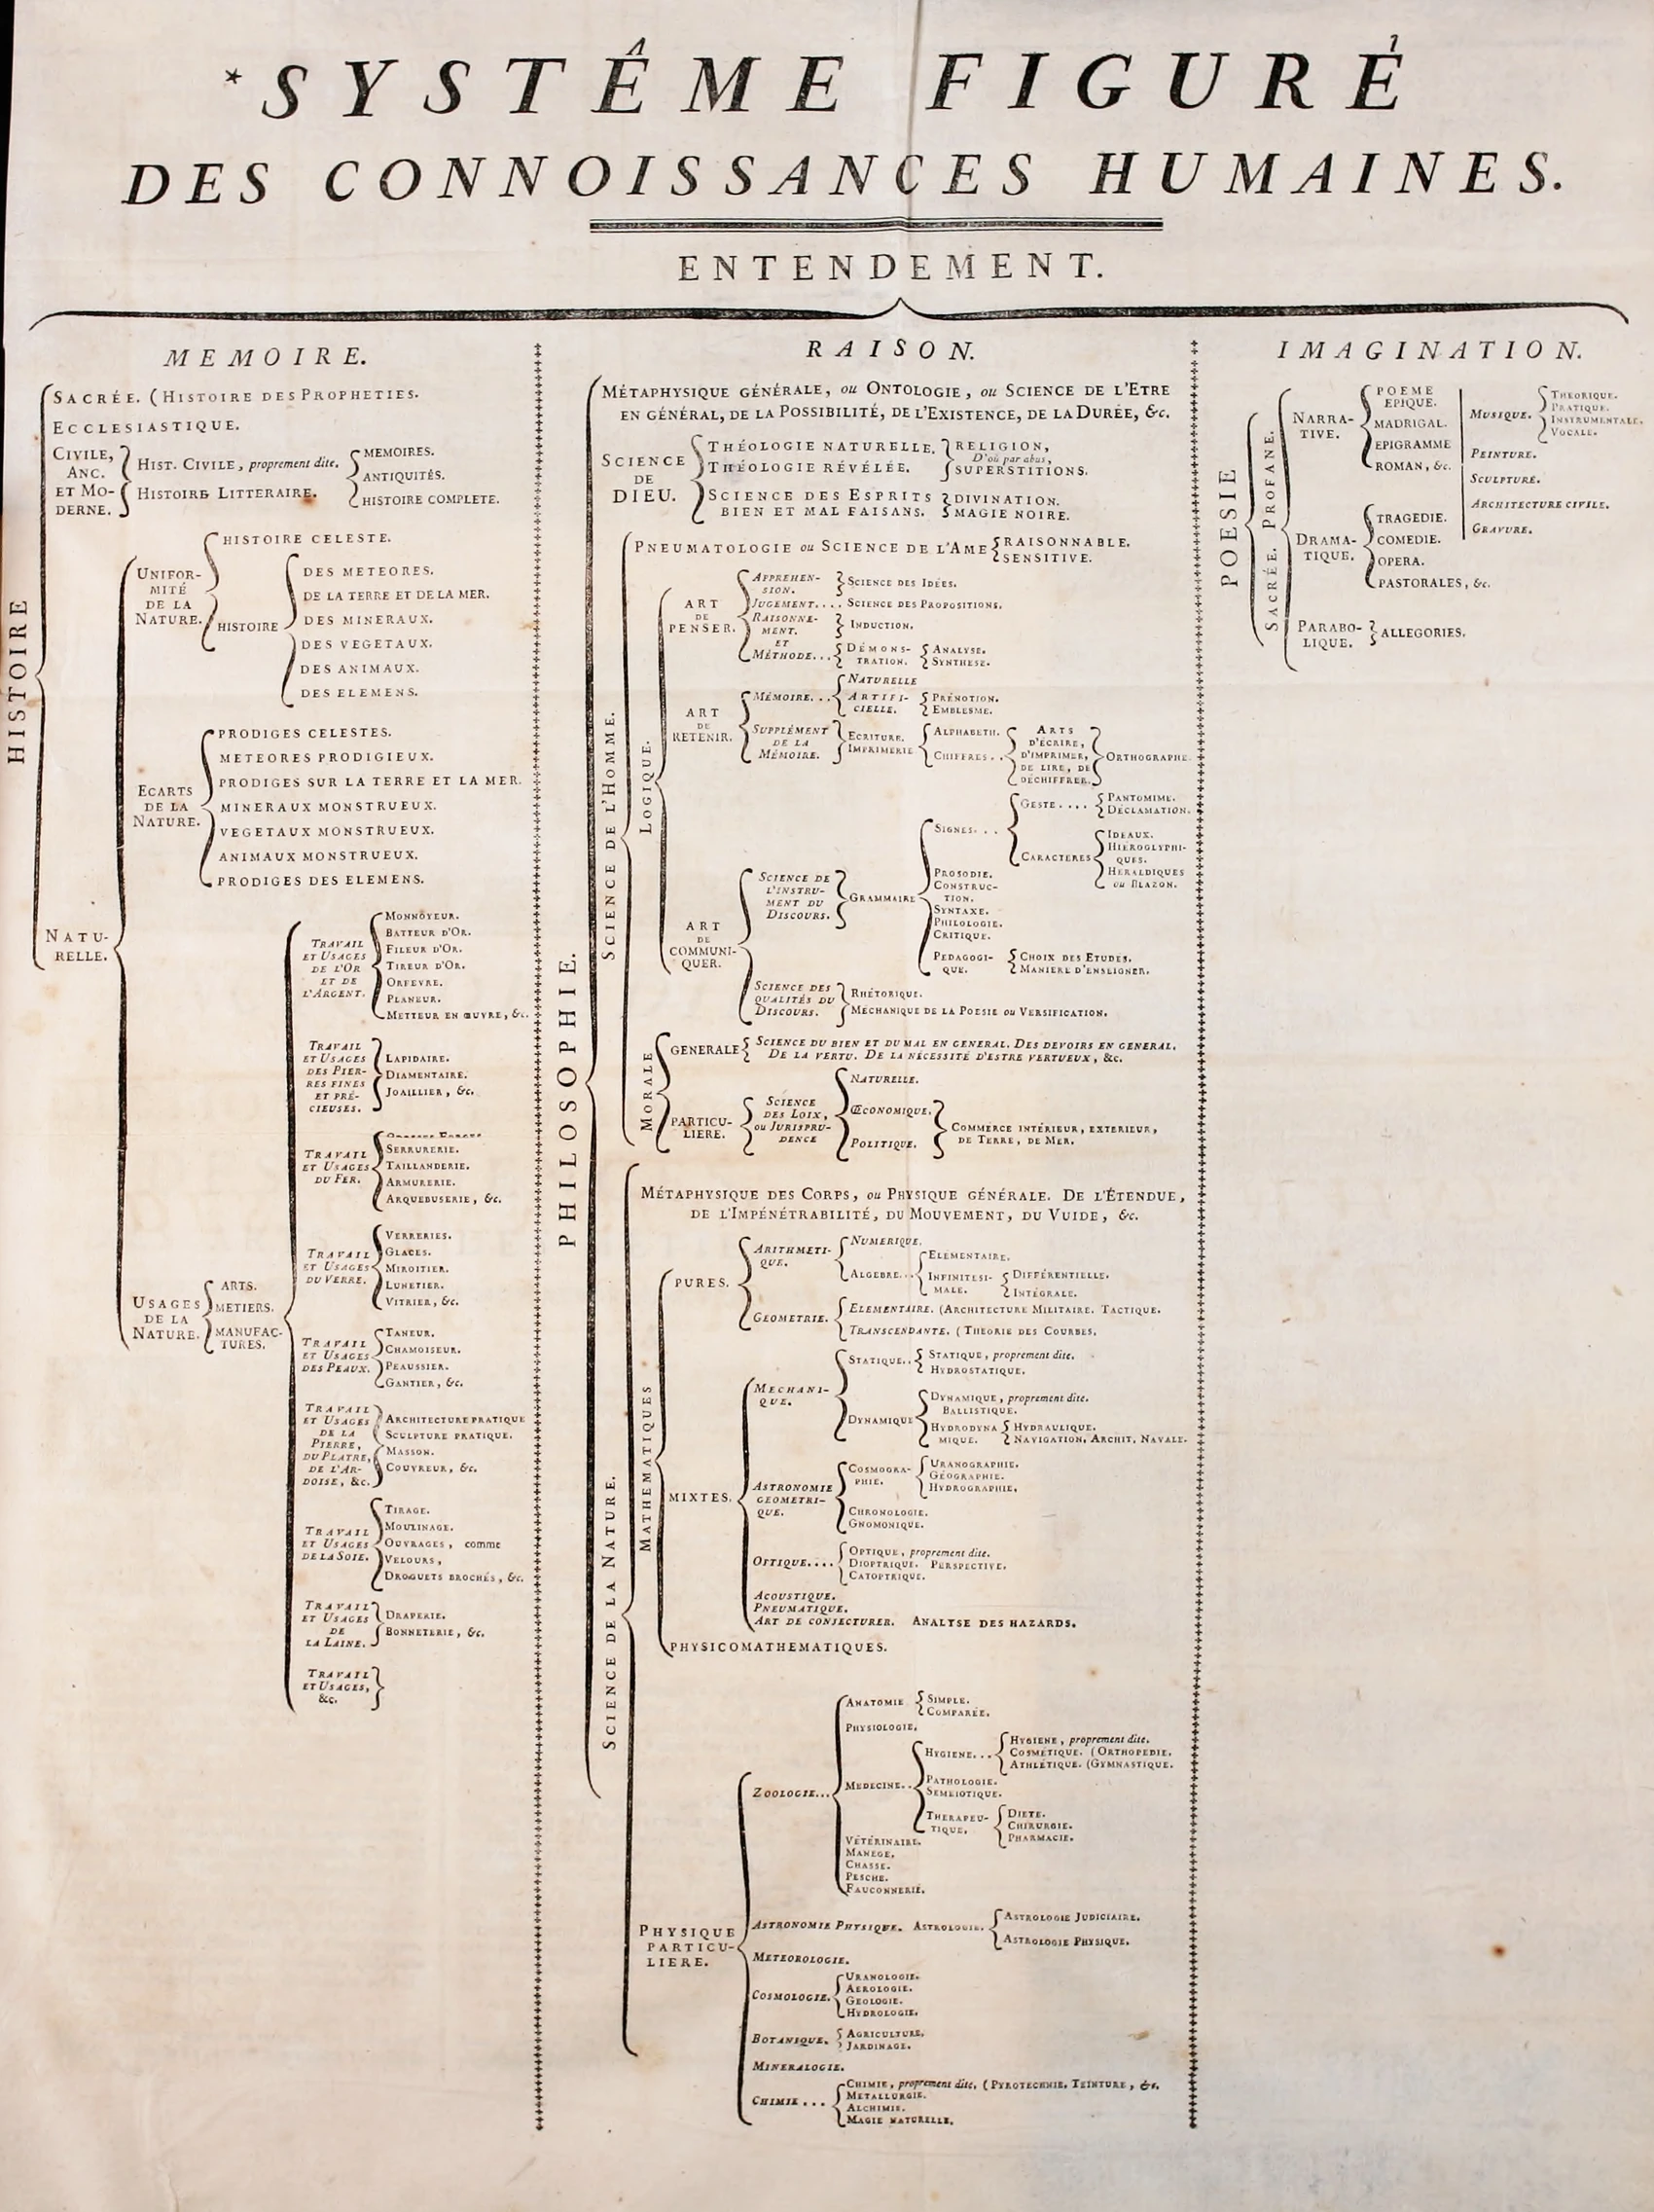 *SYSTÉME FIGURÉ
DES CONNOISSANCES HUMAINES.
ENTENDEMENT.
MEMOIRE.
HISTOIRE
SACRÉE. (HISTOIRE DES PROPHETIES.
ECCLESIASTIQUE.
CIVILE,
ANC.
ET MO-
DERNE.
HIST. CIVILE, proprement dite.
HISTOIRE LITTERAIRE.
MEMOIRES.
ANTIQUITÉS.
HISTOIRE COMPLETE.
NATU-
RELLE.
UNIFOR-
MITÉ
DE LA
NATURE.
HISTOIRE CELESTE.
HISTOIRE
DES METEORES.
DE LA TERRE ET DE LA MER.
DES MINERAUX.
DES VEGETAUX.
DES ANIMAUX.
DES ELEMENS.
ECARTS
DE LA
NATURE.
PRODIGES CELESTES.
METEORES PRODIGIEUX.
PRODIGES SUR LA TERRE ET LA MER.
MINERAUX MONSTRUEUX.
VEGETAUX MONSTRUEUX.
ANIMAUX MONSTRUEUX.
PRODIGES DES ELEMENS.
USAGES
DE LA
NATURE.
ARTS.
METIERS.
MANUFAC-
TURES.
TRAVAIL
ET USAGES
DE L'OR
ET DE
L'ARGENT.
MONNOYEUR.
BATTEUR D'OR.
FILEUR D'OR.
TIREUR D'OR.
ORFEVRE.
PLANEUR.
METTEUR EN ŒUVRE, &c.
TRAVAIL
ET USAGES
DES PIER-
RES FINES
ET PRÉ-
CIEUSES.
LAPIDAIRE.
DIAMENTAIRE.
JOAILLIER, &c.
TRAVAIL
ET USAGES
DU FER.
SERRURERIE.
TAILLANDERIE.
ARMURERIE.
ARQUEBUSERIE, &c.
TRAVAIL
ET USAGES
DU VERRE.
VERRERIES.
GLACES.
MIROITIER.
LUNETIER.
VITRIER, &c.
TRAVAIL
ET USAGES
DES PEAUX.
TANEUR.
CHAMOISEUR.
PEAUSSIER.
GANTIER, &c.
TRAVAIL
ET USAGES
DE LA
PIERRE,
DU PLATRE,
DE L'AR-
DOISE, &c.
ARCHITECTURE PRATIQUE
SCULPTURE PRATIQUE.
MASSON.
COUVREUR, &c.
TRAVAIL
ET USAGES
DE LA SOIE.
TIRAGE.
MOULINAGE.
OUVRAGES, comme
VELOURS,
DROGUETS BROCHÉS, &c.
TRAVAIL
ET USAGES
DE
LA LAINE.
DRAPERIE.
BONNETERIE, &c.
TRAVAIL
ET USAGES,
&c.
RAISON.
PHILOSOPHIE.
MÉTAPHYSIQUE GÉNÉRALE, ou ONTOLOGIE, ou SCIENCE DE L'ETRE
EN GÉNÉRAL, DE LA POSSIBILITÉ, DE L'EXISTENCE, DE LA DURÉE, &c.
SCIENCE
DE
DIEU.
THÉOLOGIE NATURELLE.
THÉOLOGIE RÉVÉLÉE.
RELIGION,
D'où par abus,
SUPERSTITIONS.
SCIENCE DES ESPRITS
BIEN ET MAL FAISANS.
DIVINATION.
MAGIE NOIRE.
SCIENCE DE L'HOMME.
PNEUMATOLOGIE ou SCIENCE DE L'AME
RAISONNABLE.
SENSITIVE.
LOGIQUE.
ART
DE
PENSER.
APPREHEN-
SION.
SCIENCE DES IDÉES.
JUGEMENT.... SCIENCE DES PROPOSITIONS.
RAISONNE-
MENT.
INDUCTION.
ET
MÉTHODE...
DÉMONS-
TRATION.
ANALYSE.
SYNTHESE.
ART
DE
RETENIR.
MÉMOIRE...
NATURELLE
ARTIFI-
CIELLE.
PRÉNOTION.
EMBLESME.
SUPPLÉMENT
DE LA
MÉMOIRE.
ECRITURE.
IMPRIMERIE
ALPHABETH.
CHIFFRES..
ARTS
D'ÉCRIRE,
D'IMPRIMER,
DE LIRE, DE
DÉCHIFFRER.
ORTHOGRAPHE.
ART
DE
COMMUNI-
QUER.
SCIENCE DE
L'INSTRU-
MENT DU
DISCOURS.
GRAMMAIRE
SIGNES...
GESTE....
PANTOMIME.
DÉCLAMATION.
CARACTERES
IDEAUX.
HIÉROGLYPHI-
QUES.
HÉRALDIQUES
ou BLAZON.
PROSODIE.
CONSTRUC-
TION.
SYNTAXE.
PHILOLOGIE.
CRITIQUE.
PEDAGOGI-
QUE.
CHOIX DES ETUDES.
MANIERE D'ENSEIGNER.
SCIENCE DES
QUALITÉS DU
DISCOURS.
RHÉTORIQUE.
MÉCHANIQUE DE LA POESIE ou VERSIFICATION.
MORALE
GENERALE
SCIENCE DU BIEN ET DU MAL EN GENERAL. DES DEVOIRS EN GENERAL.
DE LA VERTU. DE LA NÉCESSITÉ D'ESTRE VERTUEUX, &c.
PARTICU-
LIERE.
SCIENCE
DES LOIX,
ou JURISPRU-
DENCE
NATURELLE.
ŒCONOMIQUE.
POLITIQUE.
COMMERCE INTÉRIEUR, EXTERIEUR,
DE TERRE, DE MER.
SCIENCE DE LA NATURE.
MÉTAPHYSIQUE DES CORPS, ou PHYSIQUE GÉNÉRALE. DE L'ÉTENDUE,
DE L'IMPÉNÉTRABILITÉ, DU MOUVEMENT, DU VUIDE, &c.
MATHEMATIQUES
PURES.
ARITHMETI-
QUE.
NUMERIQUE.
ALGEBRE...
ELÉMENTAIRE.
INFINITESI-
MALE.
DIFFÉRENTIELLE.
INTÉGRALE.
GEOMETRIE.
ELEMENTAIRE. (ARCHITECTURE MILITAIRE. TACTIQUE.
TRANSCENDANTE. (THEORIE DES COURBES.
MIXTES.
MECHANI-
QUE.
STATIQUE..
STATIQUE, proprement dite.
HYDROSTATIQUE.
DYNAMIQUE
DYNAMIQUE, proprement dite.
BALLISTIQUE.
HYDRODYNA
MIQUE.
HYDRAULIQUE.
NAVIGATION, ARCHIT. NAVALE.
ASTRONOMIE
GEOMETRI-
QUE.
COSMOGRA-
PHIE.
URANOGRAPHIE.
GÉOGRAPHIE.
HYDROGRAPHIE.
CHRONOLOGIE.
GNOMONIQUE.
OPTIQUE....
OPTIQUE, proprement dite.
DIOPTRIQUE. PERSPECTIVE.
CATOPTRIQUE.
ACOUSTIQUE.
PNEUMATIQUE.
ART DE CONJECTURER. ANALYSE DES HAZARDS.
PHYSICOMATHEMATIQUES.
PHYSIQUE
PARTICU-
LIERE.
ZOOLOGIE...
ANATOMIE
SIMPLE.
COMPARÉE.
PHYSIOLOGIE.
MEDECINE..
HYGIENE...
HYGIENE, proprement dite.
COSMÉTIQUE. (ORTHOPEDIE.
ATHLÉTIQUE. (GYMNASTIQUE.
PATHOLOGIE.
SEMEIOTIQUE.
THERAPEU-
TIQUE.
DIETE.
CHIRURGIE.
PHARMACIE.
VÉTÉRINAIRE.
MANEGE.
CHASSE.
PESCHE.
FAUCONNERIE.
ASTRONOMIE PHYSIQUE. ASTROLOGIE.
ASTROLOGIE JUDICIAIRE.
ASTROLOGIE PHYSIQUE.
METEOROLOGIE.
COSMOLOGIE.
URANOLOGIE.
AEROLOGIE.
GEOLOGIE.
HYDROLOGIE.
BOTANIQUE.
AGRICULTURE.
JARDINAGE.
MINERALOGIE.
CHIMIE...
CHIMIE, proprement dite, (PYROTECHNIE, TEINTURE, &c.
METALLURGIE.
ALCHIMIE.
MAGIE NATURELLE.
IMAGINATION.
POESIE
SACRÉE. PROFANE.
NARRA-
TIVE.
POEME
EPIQUE.
MADRIGAL.
EPIGRAMME
ROMAN, &c.
DRAMA-
TIQUE.
TRAGEDIE.
COMEDIE.
OPERA.
PASTORALES, &c.
PARABO-
LIQUE.
ALLEGORIES.
MUSIQUE.
THEORIQUE.
PRATIQUE.
INSTRUMENTALE.
VOCALE.
PEINTURE.
SCULPTURE.
ARCHITECTURE CIVILE.
GRAVURE.